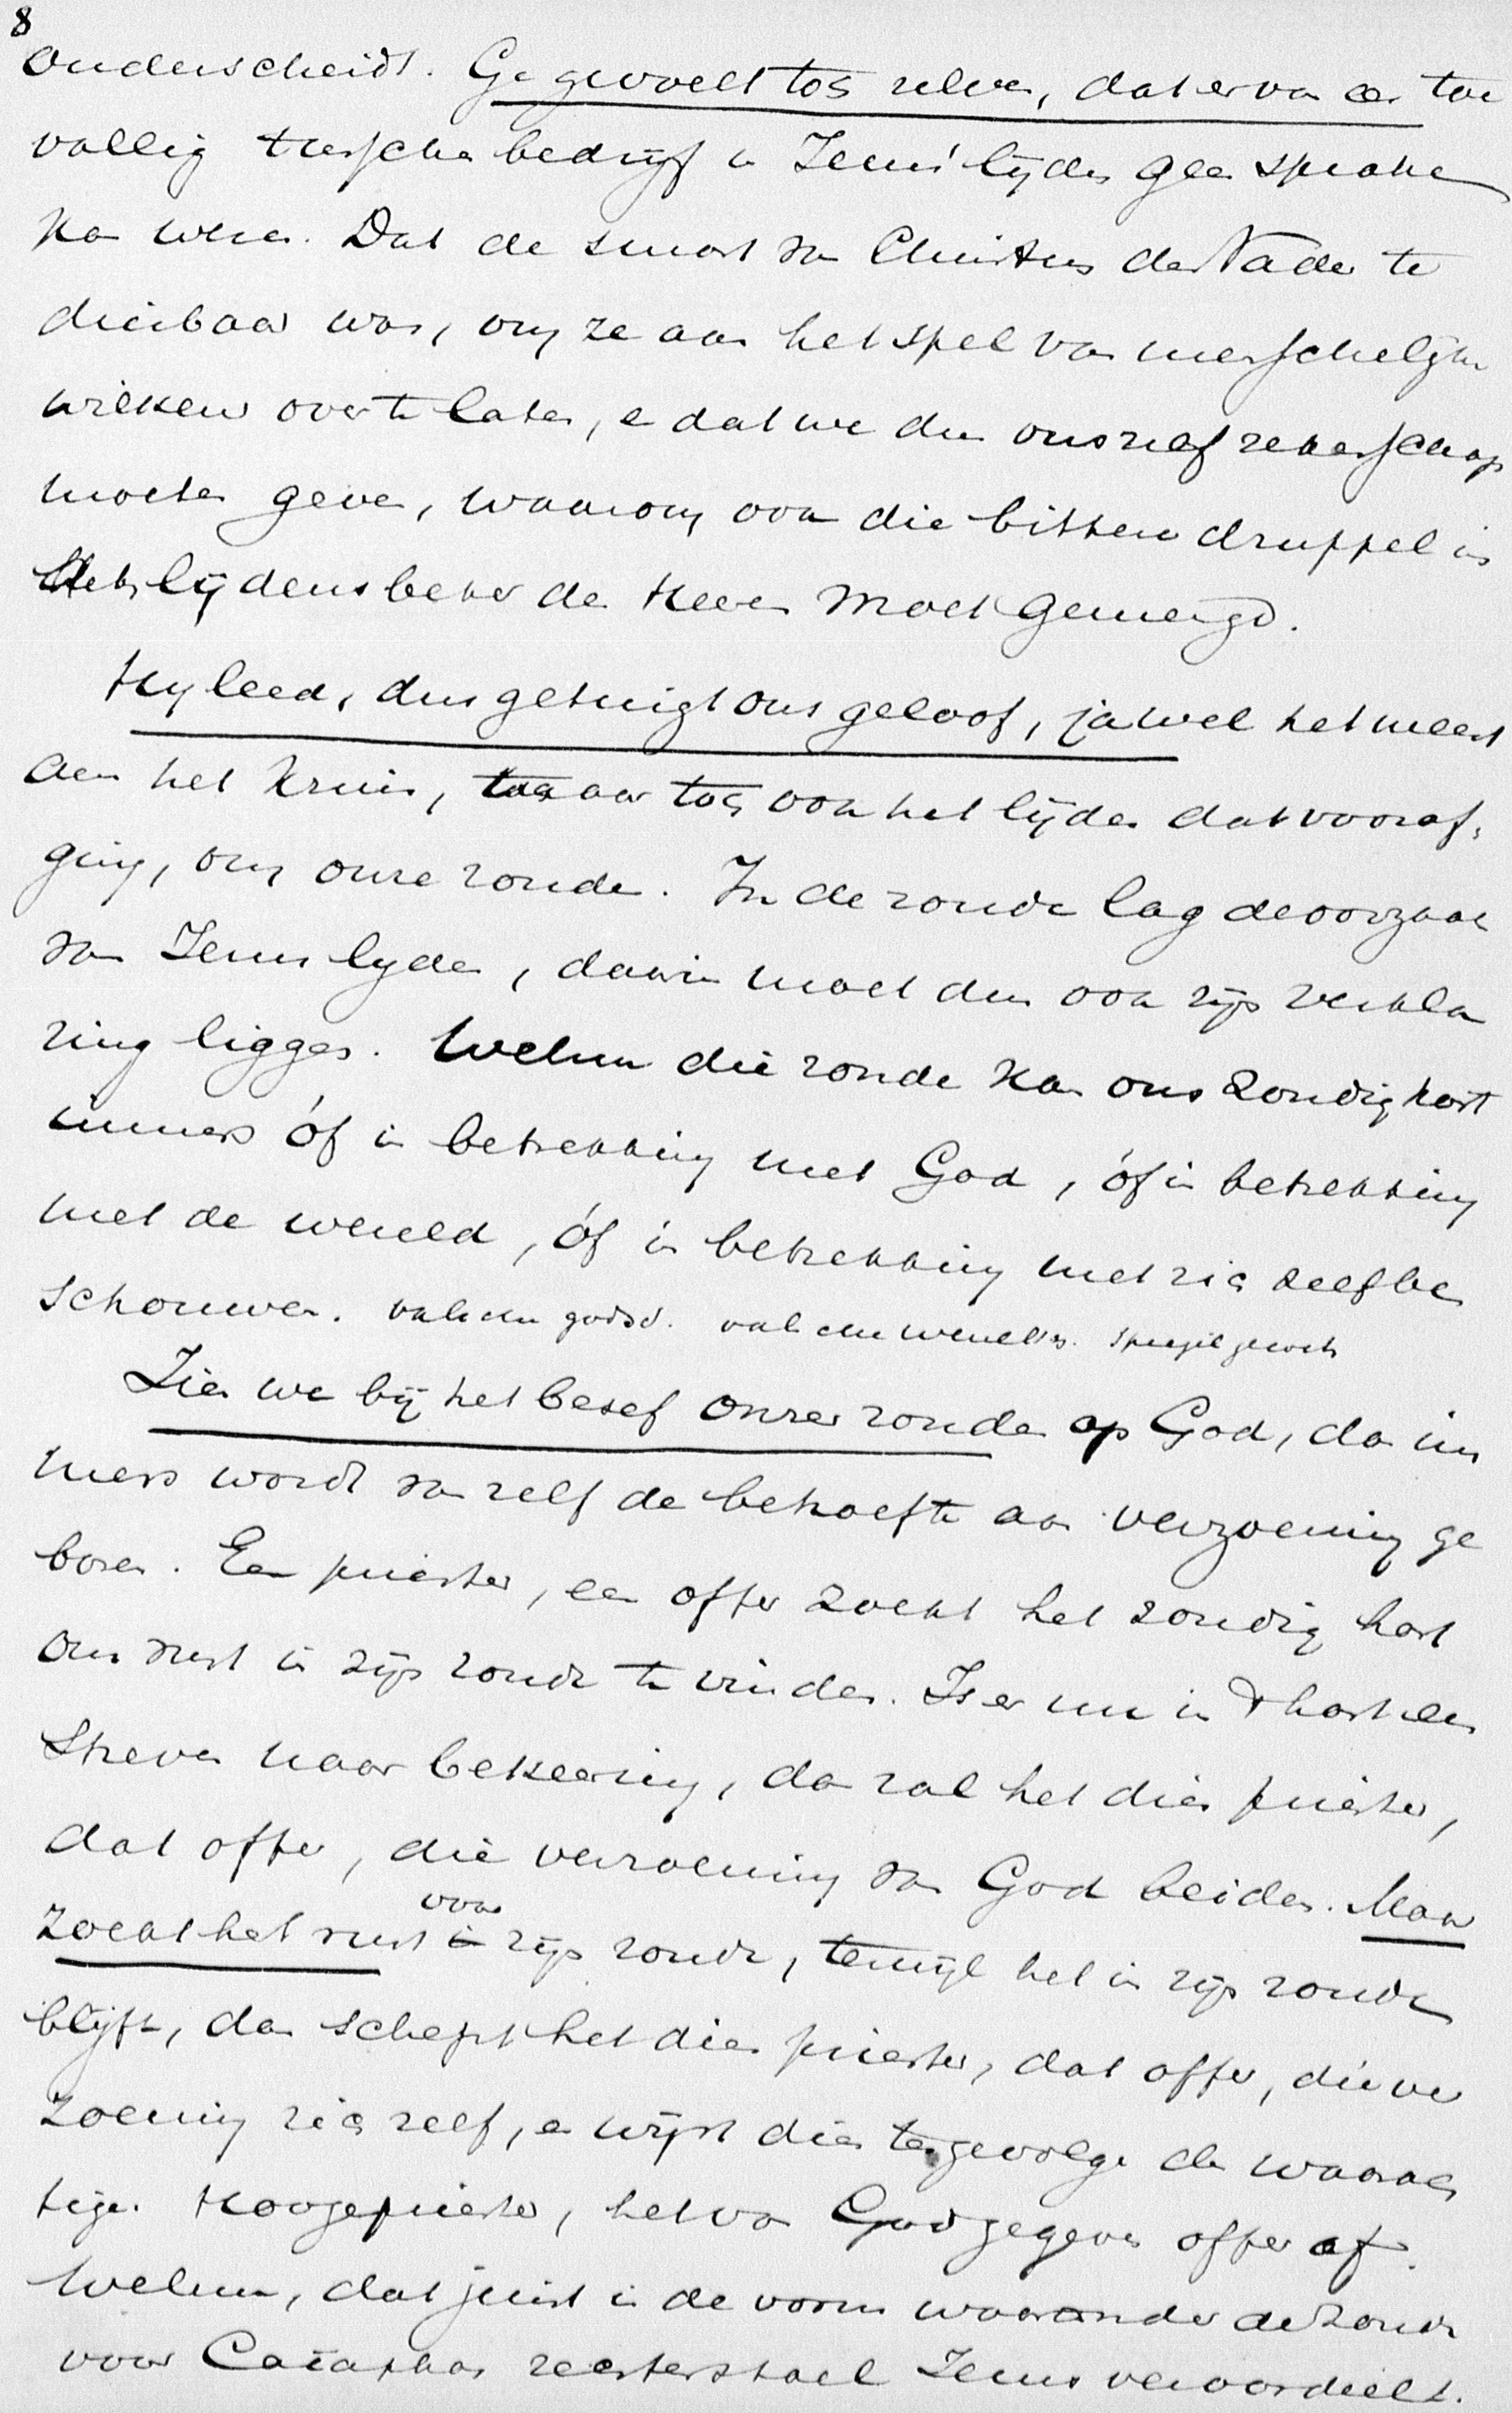 8
onderscheidt. Ge gevoelt toch zelve, dat er van een toe
vallig tusschenbedrijf in Jezus' lijden geen sprake
kan wezen. Dat de smart van Christus den Vader te
dierbaar was, om ze aan het spel van menschelijke
willekeur over te laten, en dat we dus onszelf rekenschap
moeten geven, waarom ook die bittere druppel in
den lijdensbeker des Heeren moest gemengd.
Hij leed, dus getuigt ons geloof, ja wel het meest
aan het kruis, maar toch ook het lijden dat vooraf
ging, om onze zonde. In de zonde lag de oorzaak
van Jezus lijden, daarin moet dus ook zijn verkla
ring liggen. Welnu die zonde kan ons zondig hart
immers óf in betrekking met God, óf in betrekking
met de wereld, óf in betrekking met zich zelf be
schouwen. valsche godsd. valsche wereldz.
Zien we bij het besef onzer zonden op God, dan im
mers wordt van zelf de behoefte aan verzoening ge
boren. Een priester, een offer zoekt het zondig hart
om rust in zijn zonde te vinden. Is er nu in 't hart een
streven naar bekeering, dan zal het dien priester,
dat offer, die verzoening van God beiden. Maar
zoekt het rust voor zijn zonde, terwijl het in zijn zonde
blijft, dan schept het dien priester, dat offer, die ver
zoening zich zelf, en wijst dien tengevolge den waarach
tigen Hoogepriester, het van God gegeven offer af.
Welnu, dat juist is de vorm waaronder de zonde
voor Caiaphas rechterstoel Jezus veroordeelt.